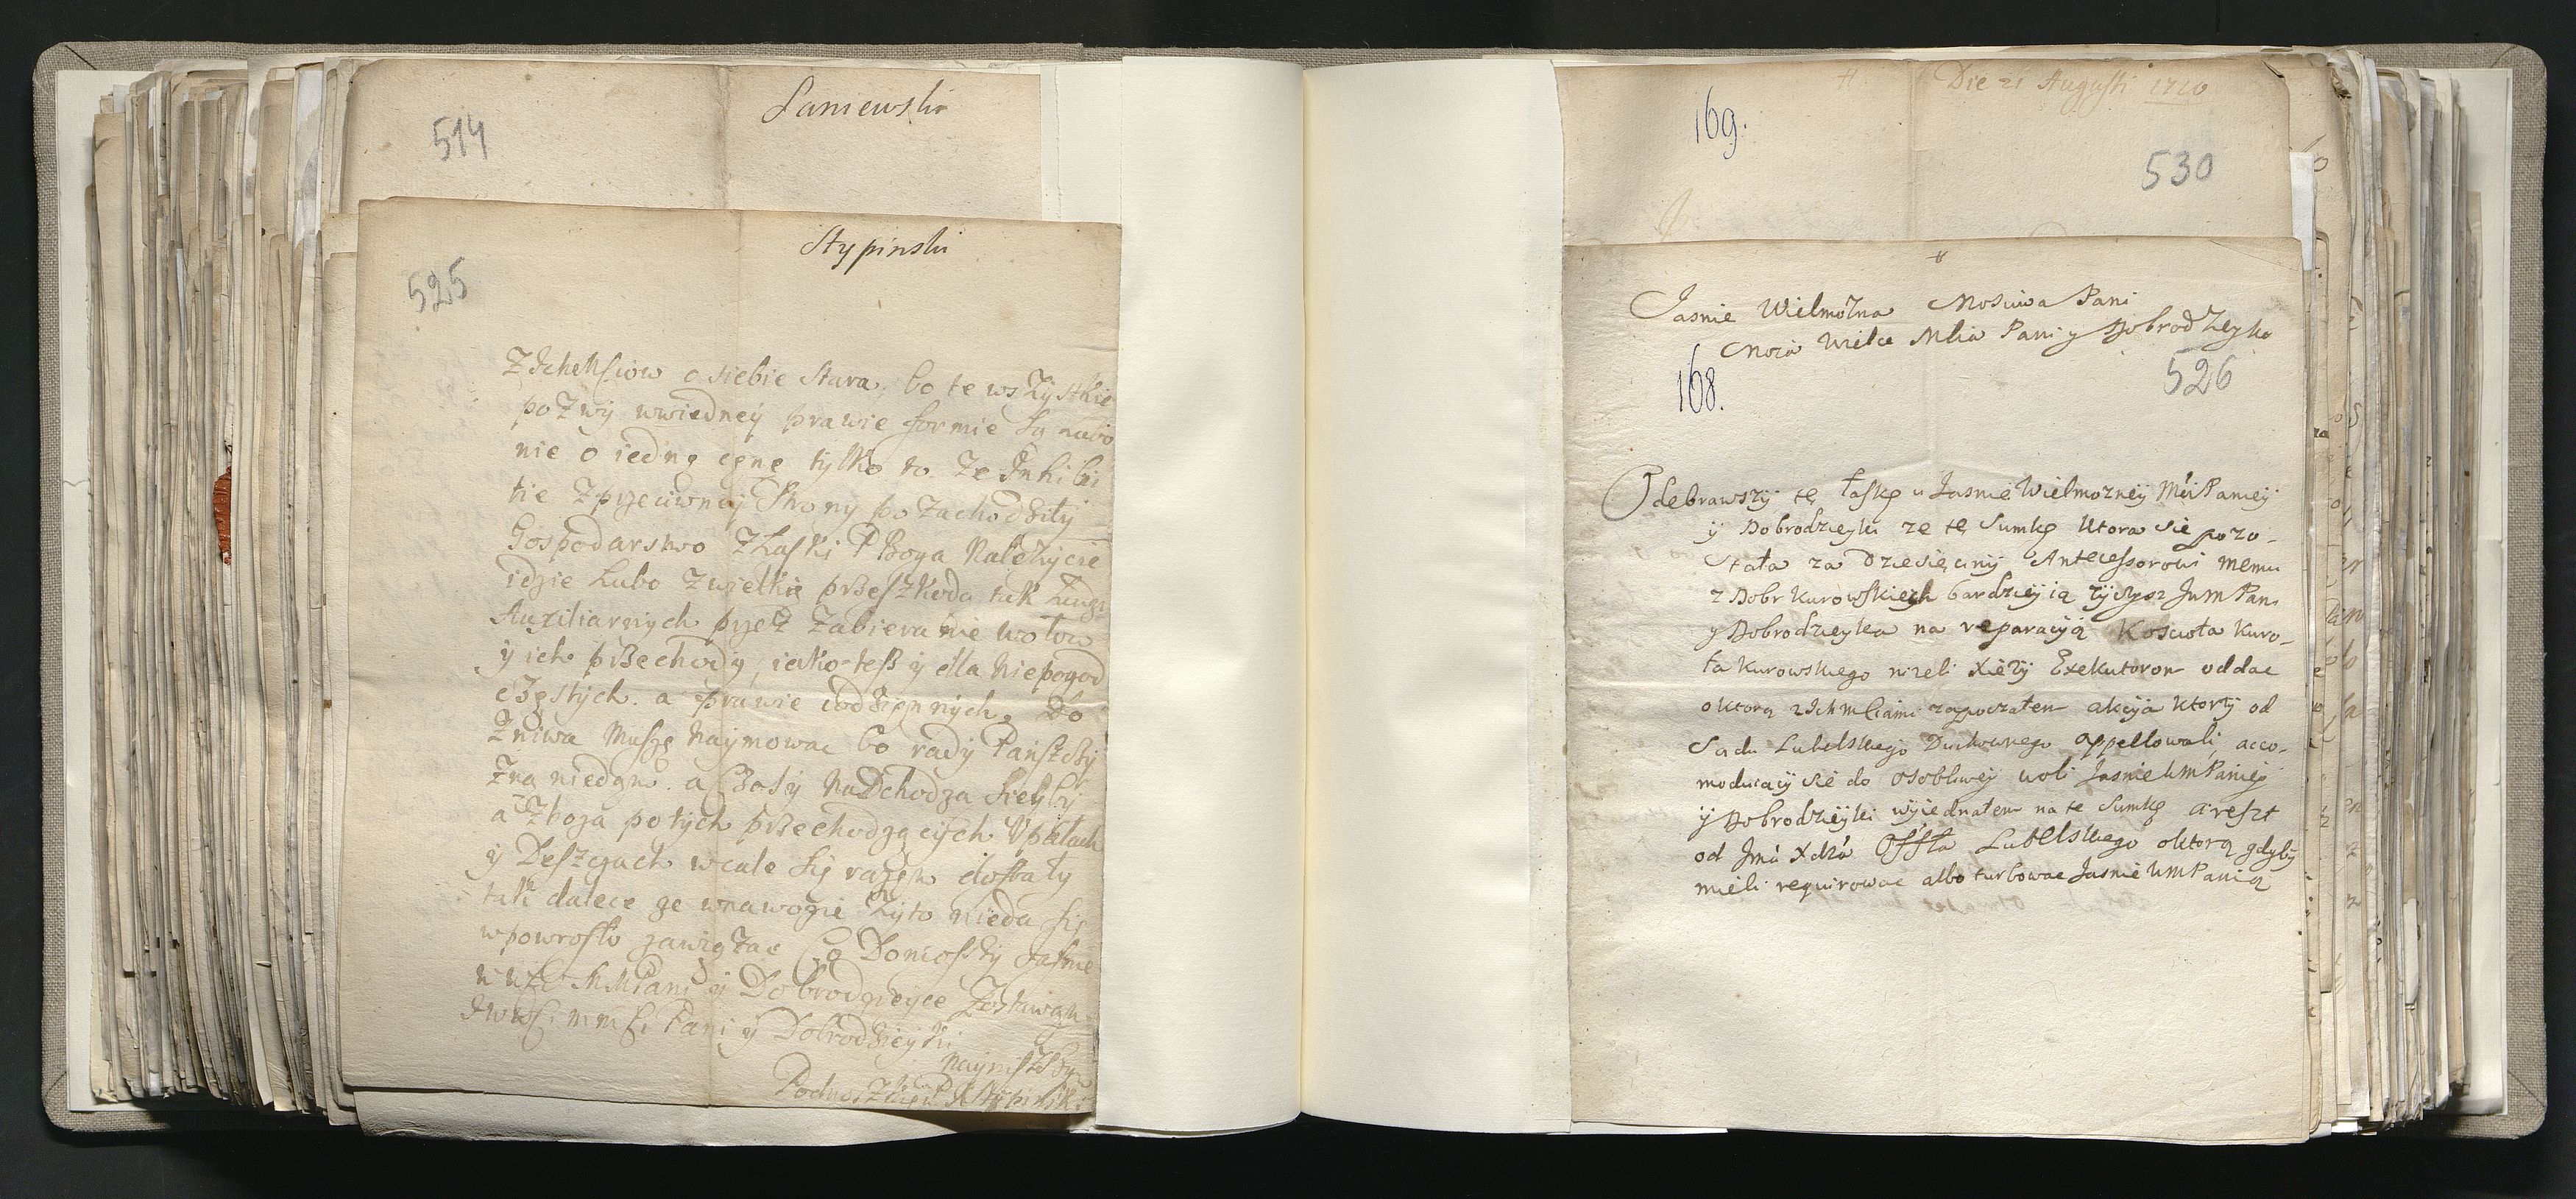 514
Saniewski
525
Stypinski
ZIchMsciow o siebie stara, bo te wszystkie
pozwy wwiedney prawie formie są lubo
nie o iedną cenę tylko to Ze Inhibi
tie Zprzeciwney Strony po Zachodziły
Gospodarstwo Złaski PBoga Nalezycie
idzie Lubo Zwielkię przeszkoda tak
Auxiliarnych przez Zabieranie wołow
y ich przechody, iako tesz y dla Niepogod
częstych. a prawie codziennych. Do
Zniwa Muszę Naymowac bo rady Panszczy
Zną niedam. a Czasy Nadchodzą
a Zboza potych przechodzących Upałach
y Deszczach wcale się razem dostały
tak dalece ze wnawozie Zyto nieda się
wpowrosło zawięzac Co Doniosszy
y Dobrodzieyce Zostawam
Pani y Dobrodzieyki
Nayniszszy
Podnozkiem Stypinski
Die 21 Augusti 1720
169.
530
Jasnie Wielmozna Mosciwa Pani
Moia Wielce Mscia Pani y Dobrodzeyko
168.
526
Odebrawszy tę łaskę u Jasnie Wielmozney Mei Paniey
y Dobrodzieyki ze tę Sumkę ktora sie pozo-
stała za dziesięciny Antecessorowi memu
z Dobr Kurowskiech bardziey ią zyczysz JwmPani
y Dobrodzieyka na reparacyą Koscioła Kuro-
ła Kurowskiego nizeli xięzy Exekutorom oddac
oktorą zIchmsciami zapoczałem akcyą ktorzy od
Sadu Lubelskiego Duchownego appellowali, acco-
moduiący sie do osobliwey woli JasnieWmPaniey
y Dobrodzieyki wyiednałem na te Sumkę areszt
od Jmci Xdza Offła Lubelskiego oktorą gdyby
mieli requirowac albo turbowac JasnieWmPanią